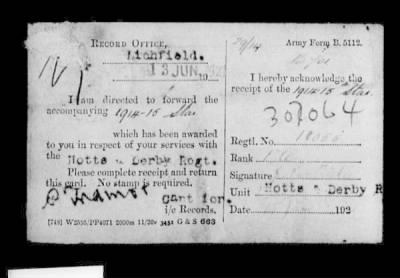 RECORD OFFICE,
Lichfield.
13 JUN 19
I am directed to forward the
accompanying 1914-15 Star
which has been awarded
to you in respect of your services with
the Notts & Derby Regt.
Please complete receipt and return
this card. No stamp is required.
Capt for.
i/c Records.
[748] W2555/PP4071 2000m 11/20v 3451 G & S 663
Army Form B. 5112.
I hereby acknowledge the
receipt of the 1914-15 Star
307064
Regtl. No.
Rank
Signature
Unit Notts & Derby R
Date 192